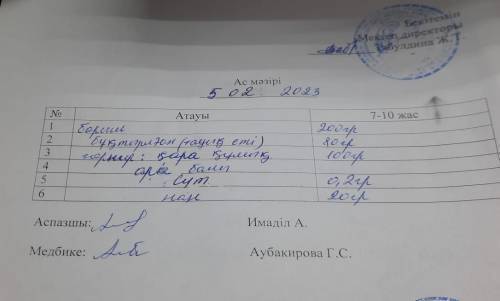 Бекітемін
Мектеп директоры
Ас мәзірі
5 02 2023
№ Атауы 7-10 жас
1 борщ 200гр
2 бұқтырылған (тауық еті) 80гр
3 гарнир: қара құмық 100гр
4 балы
5 Сүт 0,2гр
6 нан 20гр
Аспазшы: Имаділ А.
Медбике: Аубакирова Г.С.